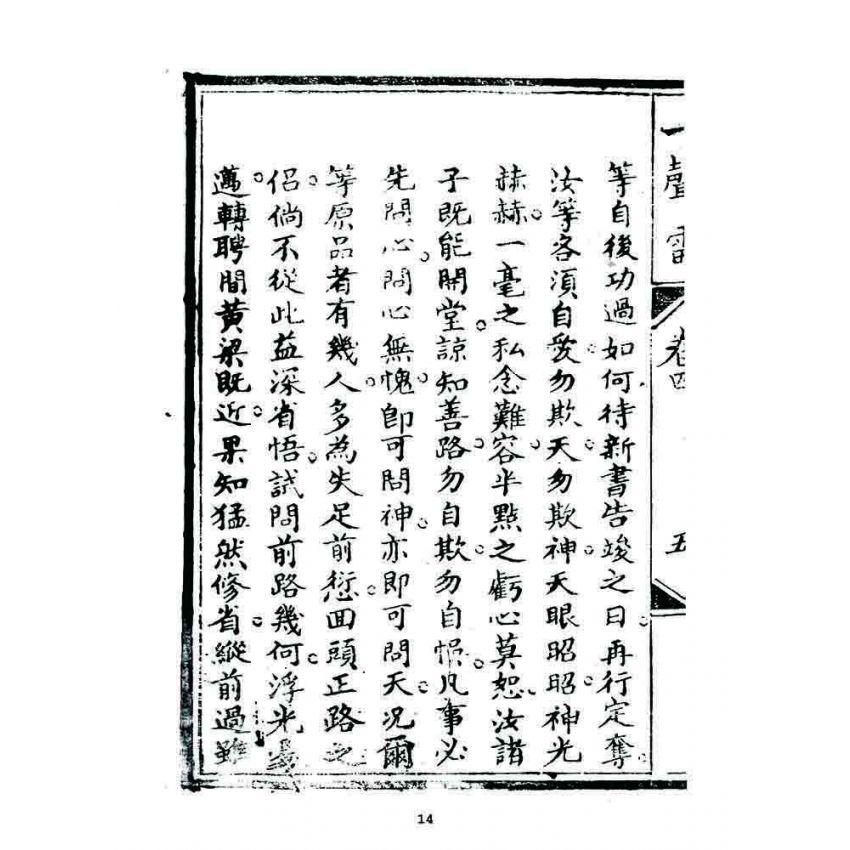 一聲雷
卷四
五
等自後功過如何待新書告竣之日再行定奪。
汝等各須自愛。勿欺天。勿欺神。天眼昭昭。神光
赫赫。一毫之私念難容。半點之虧心莫恕。汝諸
子既能開堂。諒知善路。勿自欺。勿自悞。凡事必
先問心。問心無愧。卽可問神。亦即可問天。况爾
等原品者有幾人。多為失足前愆。回頭正路之
侶。倘不從此益深省悟。試問前路幾何。浮光
邁。轉聘間黃梁既近。果知猛然修省。縱前過雖
14